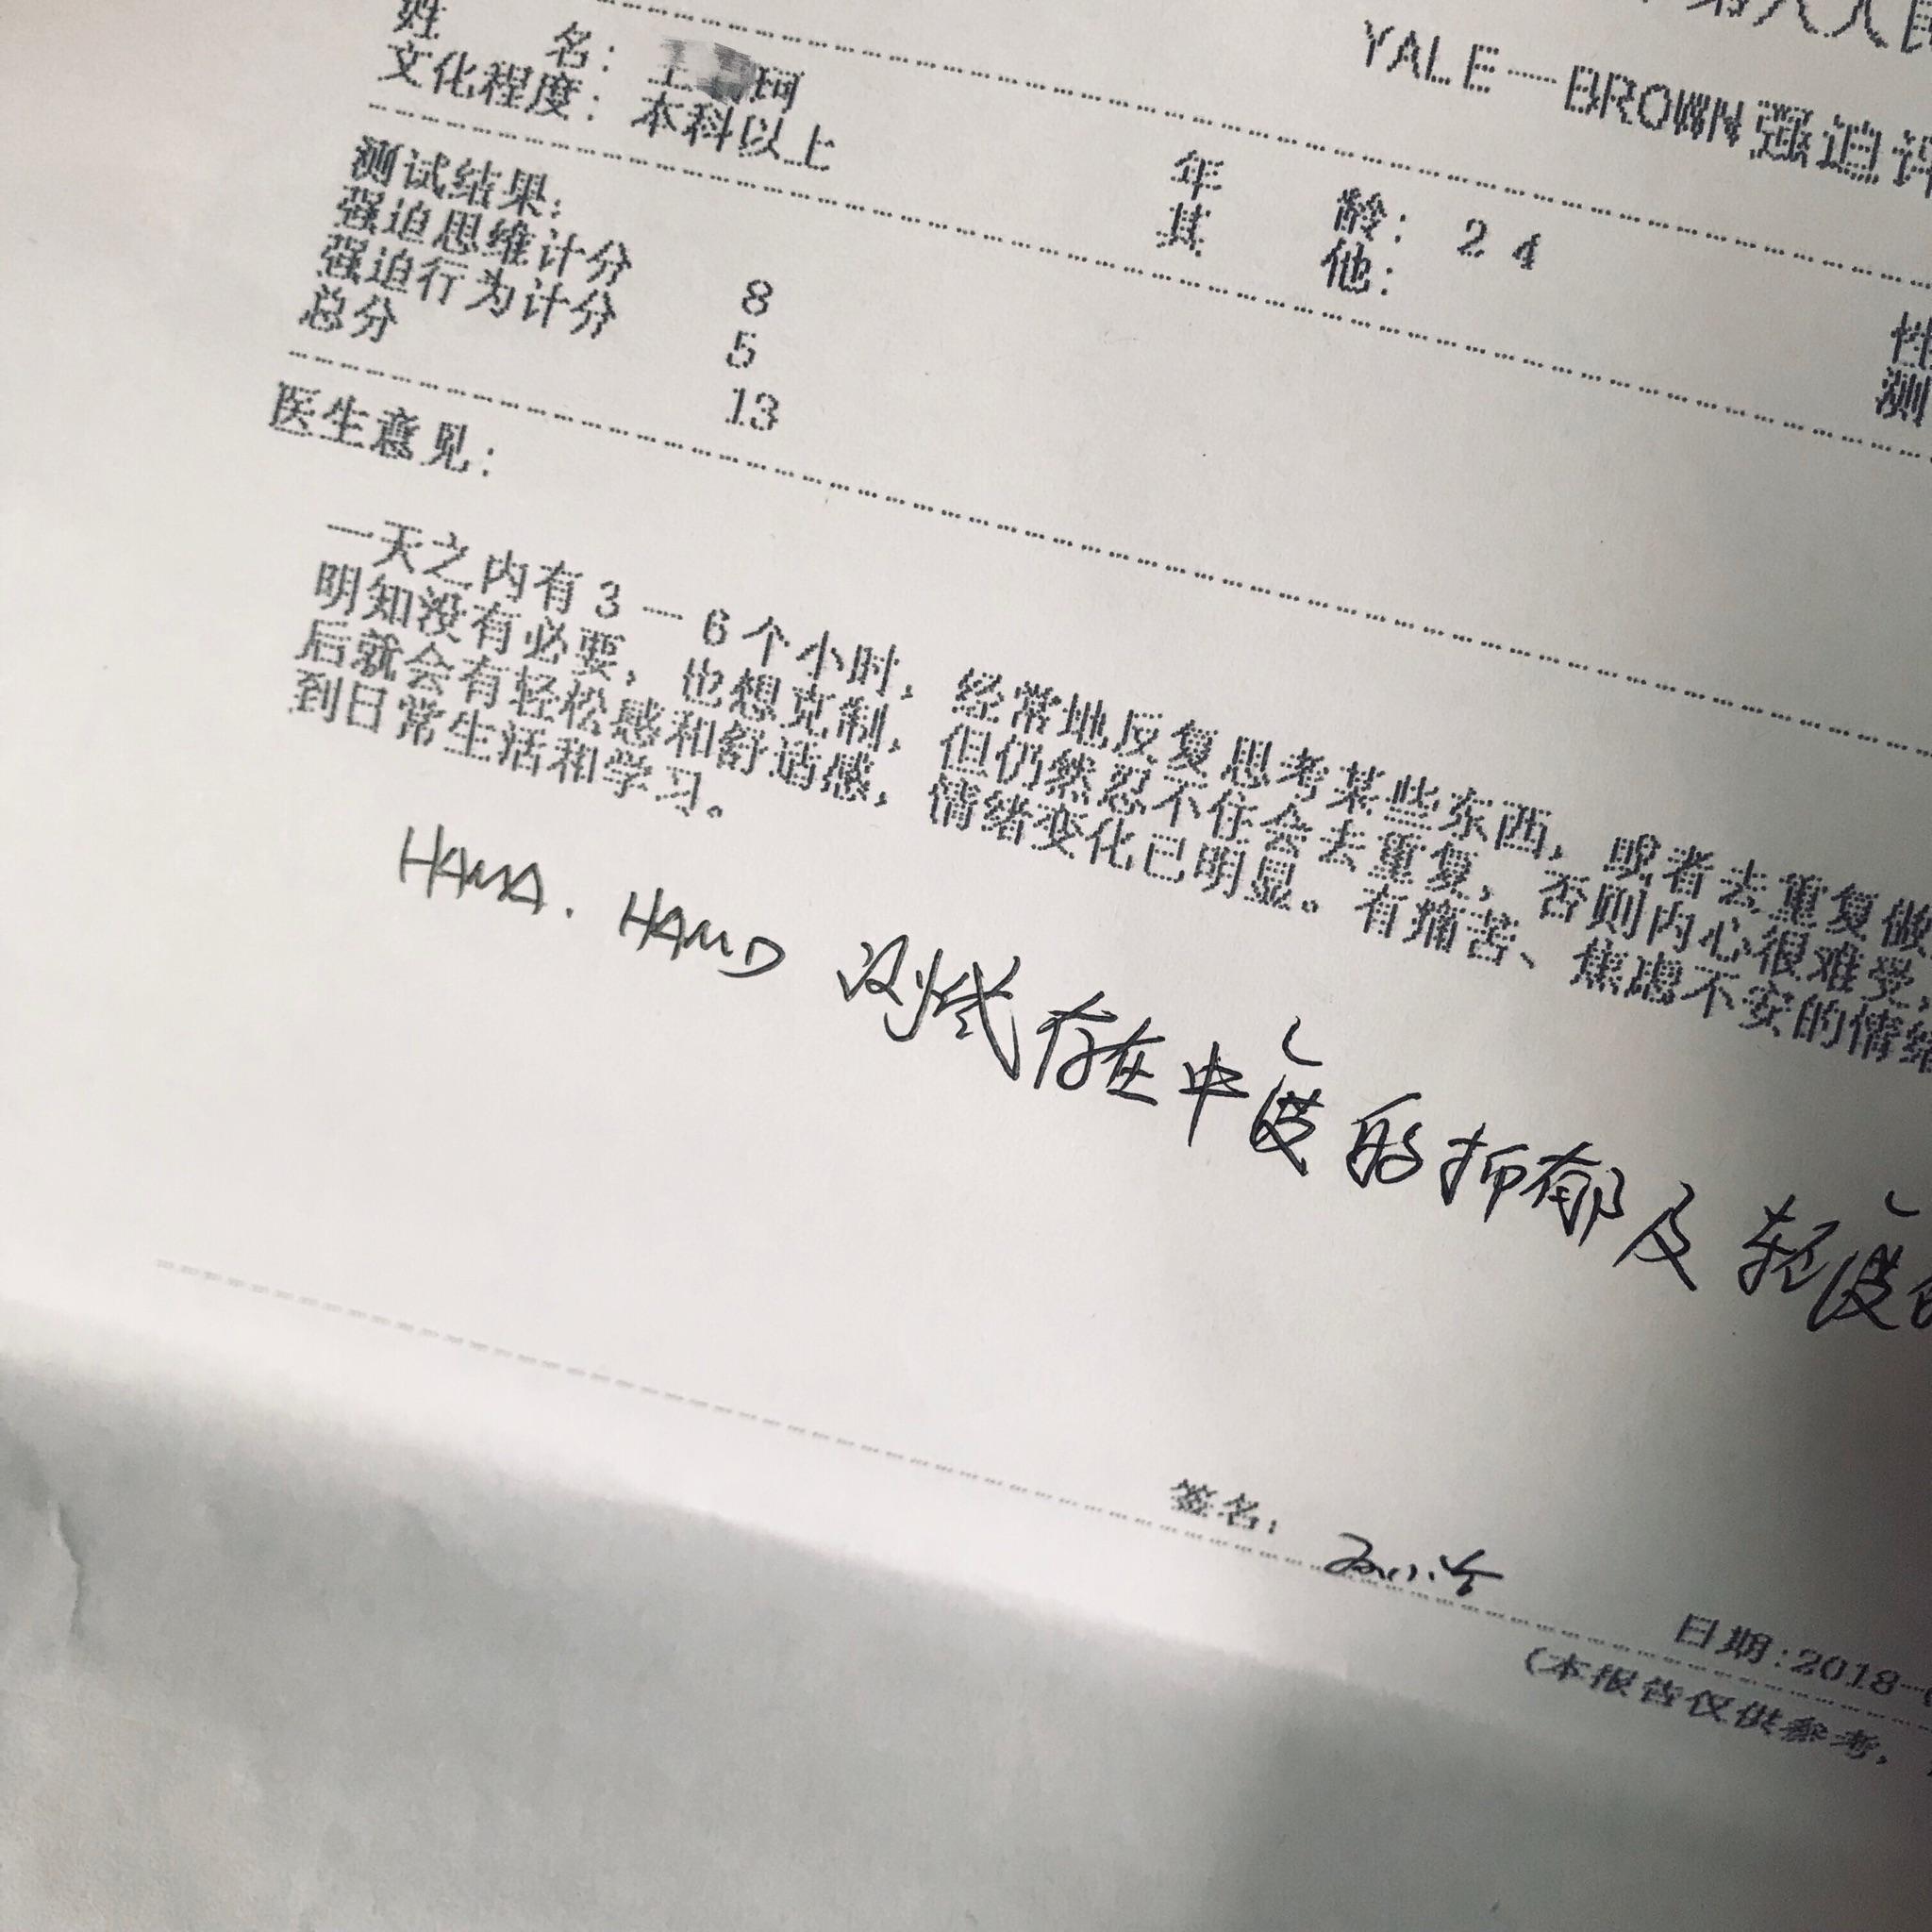 第八人民
YALE—BROWN强迫评
姓 名: 王 珂
文化程度: 本科以上
年 龄: 24
其 他:
性
测
测试结果:
强迫思维计分 8
强迫行为计分 5
总分 13
医生意见:
一天之内有3—6个小时, 经常地反复思考某些东西, 或者去重复做
明知没有必要, 也想克制, 但仍然忍不住会去重复, 否则内心很难受,
后就会有轻松感和舒适感, 情绪变化已明显。有痛苦、焦虑不安的情绪
到日常生活和学习。
HAMA. HAMD 测试存在中度的抑郁及轻度的
签名:
日期:2018-0
(本报告仅供参考,